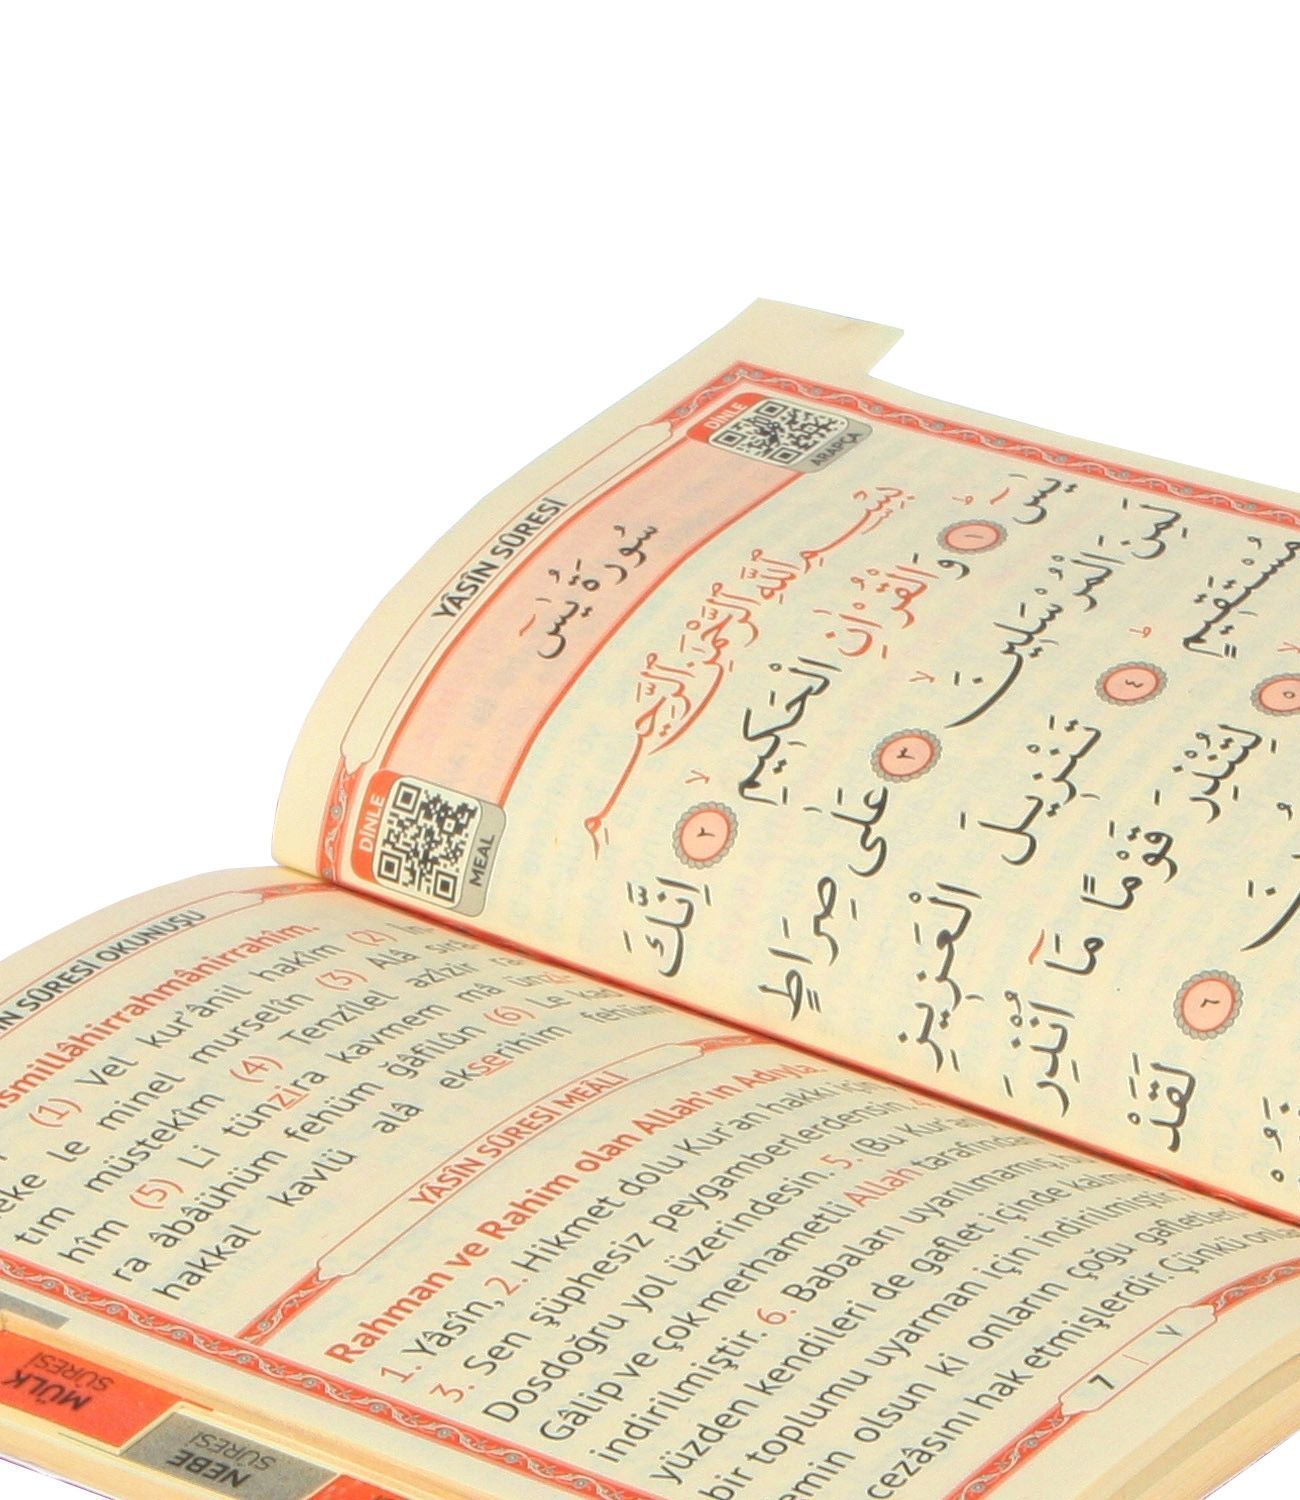 YÂSÎN SÛRESİ
DİNLE
ARAPÇA
سُورَةُ يٰسٓ
DİNLE
MEAL
بِسْمِ اللّٰهِ الرَّحْمٰنِ الرَّحِيمِ
يٰسٓ ۚ ﴿١﴾ وَالْقُرْاٰنِ الْحَكِيمِ ۙ ﴿٢﴾ اِنَّكَ
لَمِنَ الْمُرْسَلِينَ ۙ ﴿٣﴾ عَلٰى صِرَاطٍ
مُسْتَقِيمٍ ۜ ﴿٤﴾ تَنْزِيلَ الْعَزِيزِ
﴿٥﴾ لِتُنْذِرَ قَوْمًا مَٓا اُنْذِرَ
﴿٦﴾ لَقَدْ
SÛRESİ OKUNUŞU
(1) Vel kur'ânil hakîm (2)
le minel murselîn (3) Alâ
tım müstekîm (4) Tenzîlel azîzir
hîm (5) Li tünzira kavmem mâ
ra âbâühüm fehüm ğâfilûn (6) Le
hakkal kavlü alâ ekserihim fehüm
YÂSÎN SÛRESİ MEÂLİ
Rahman ve Rahim olan Allah'ın Adıyla.
1. Yâsîn, 2. Hikmet dolu Kur'an hakkı için
3. Sen şüphesiz peygamberlerdensin.
Dosdoğru yol üzerindesin. 5. (Bu Kur'an
Gâlip ve çok merhametli Allah tarafından
indirilmiştir. 6. Babaları uyarılmamış,
yüzden kendileri de gaflet içinde
bir toplumu uyarman için indirilmiştir.
emin olsun ki onların çoğu gafletleri
cezâsını hak etmişlerdir. Çünkü
7
٧
MÜLK
SÛRESİ
NEBE
SÛRESİ